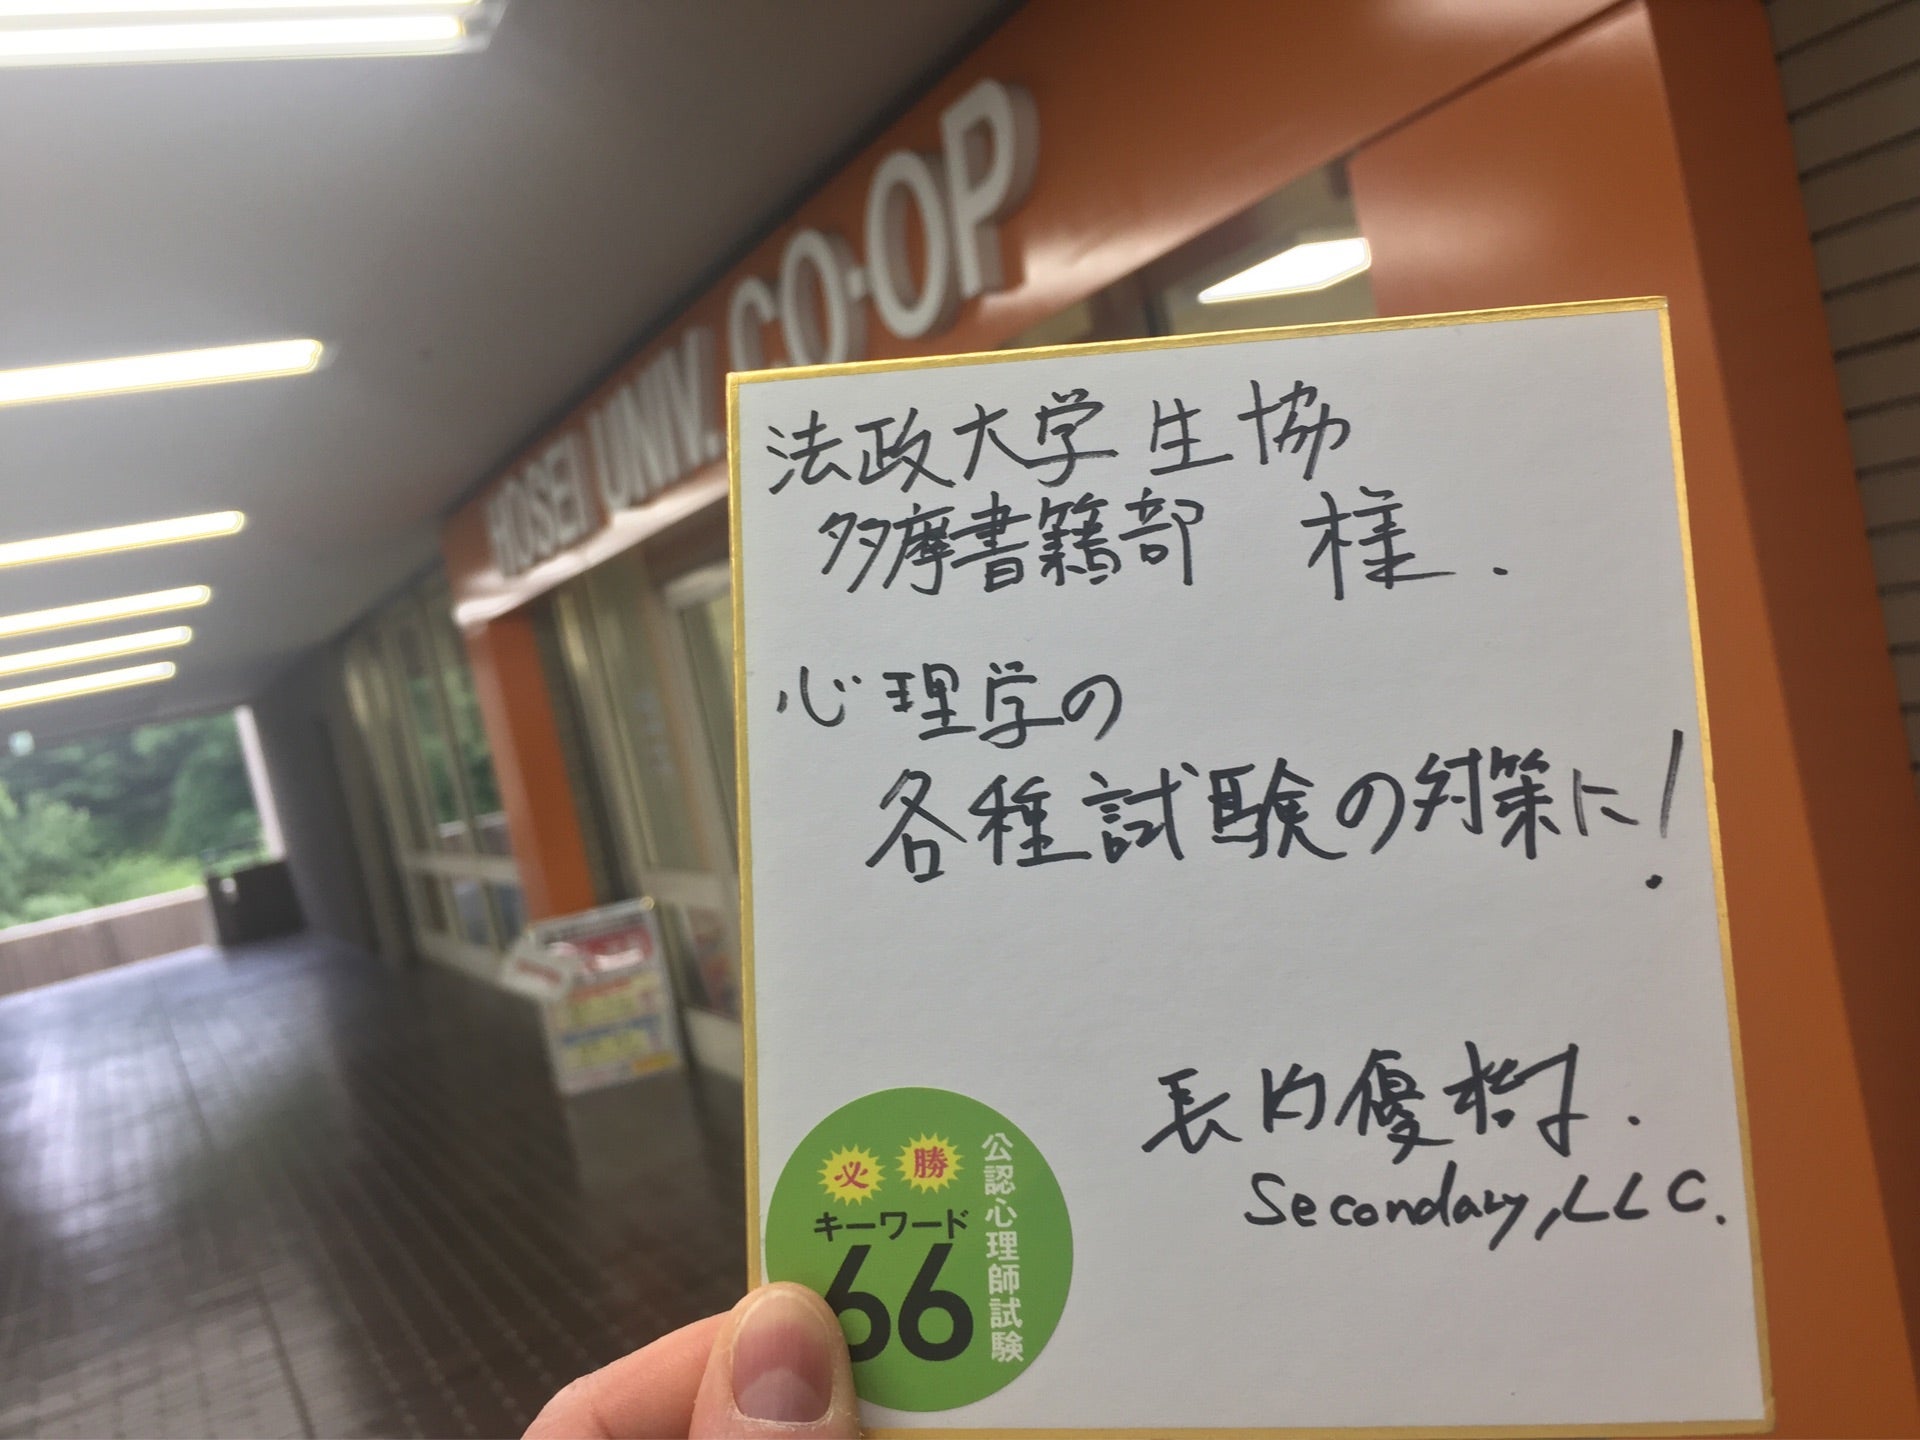 HOSEI UNIV. CO-OP
法政大学生協
多摩書籍部 様.
心理学の
各種試験の対策に!
長内優樹.
Secondary, LLC.
必勝
キーワード
66
公認心理師試験